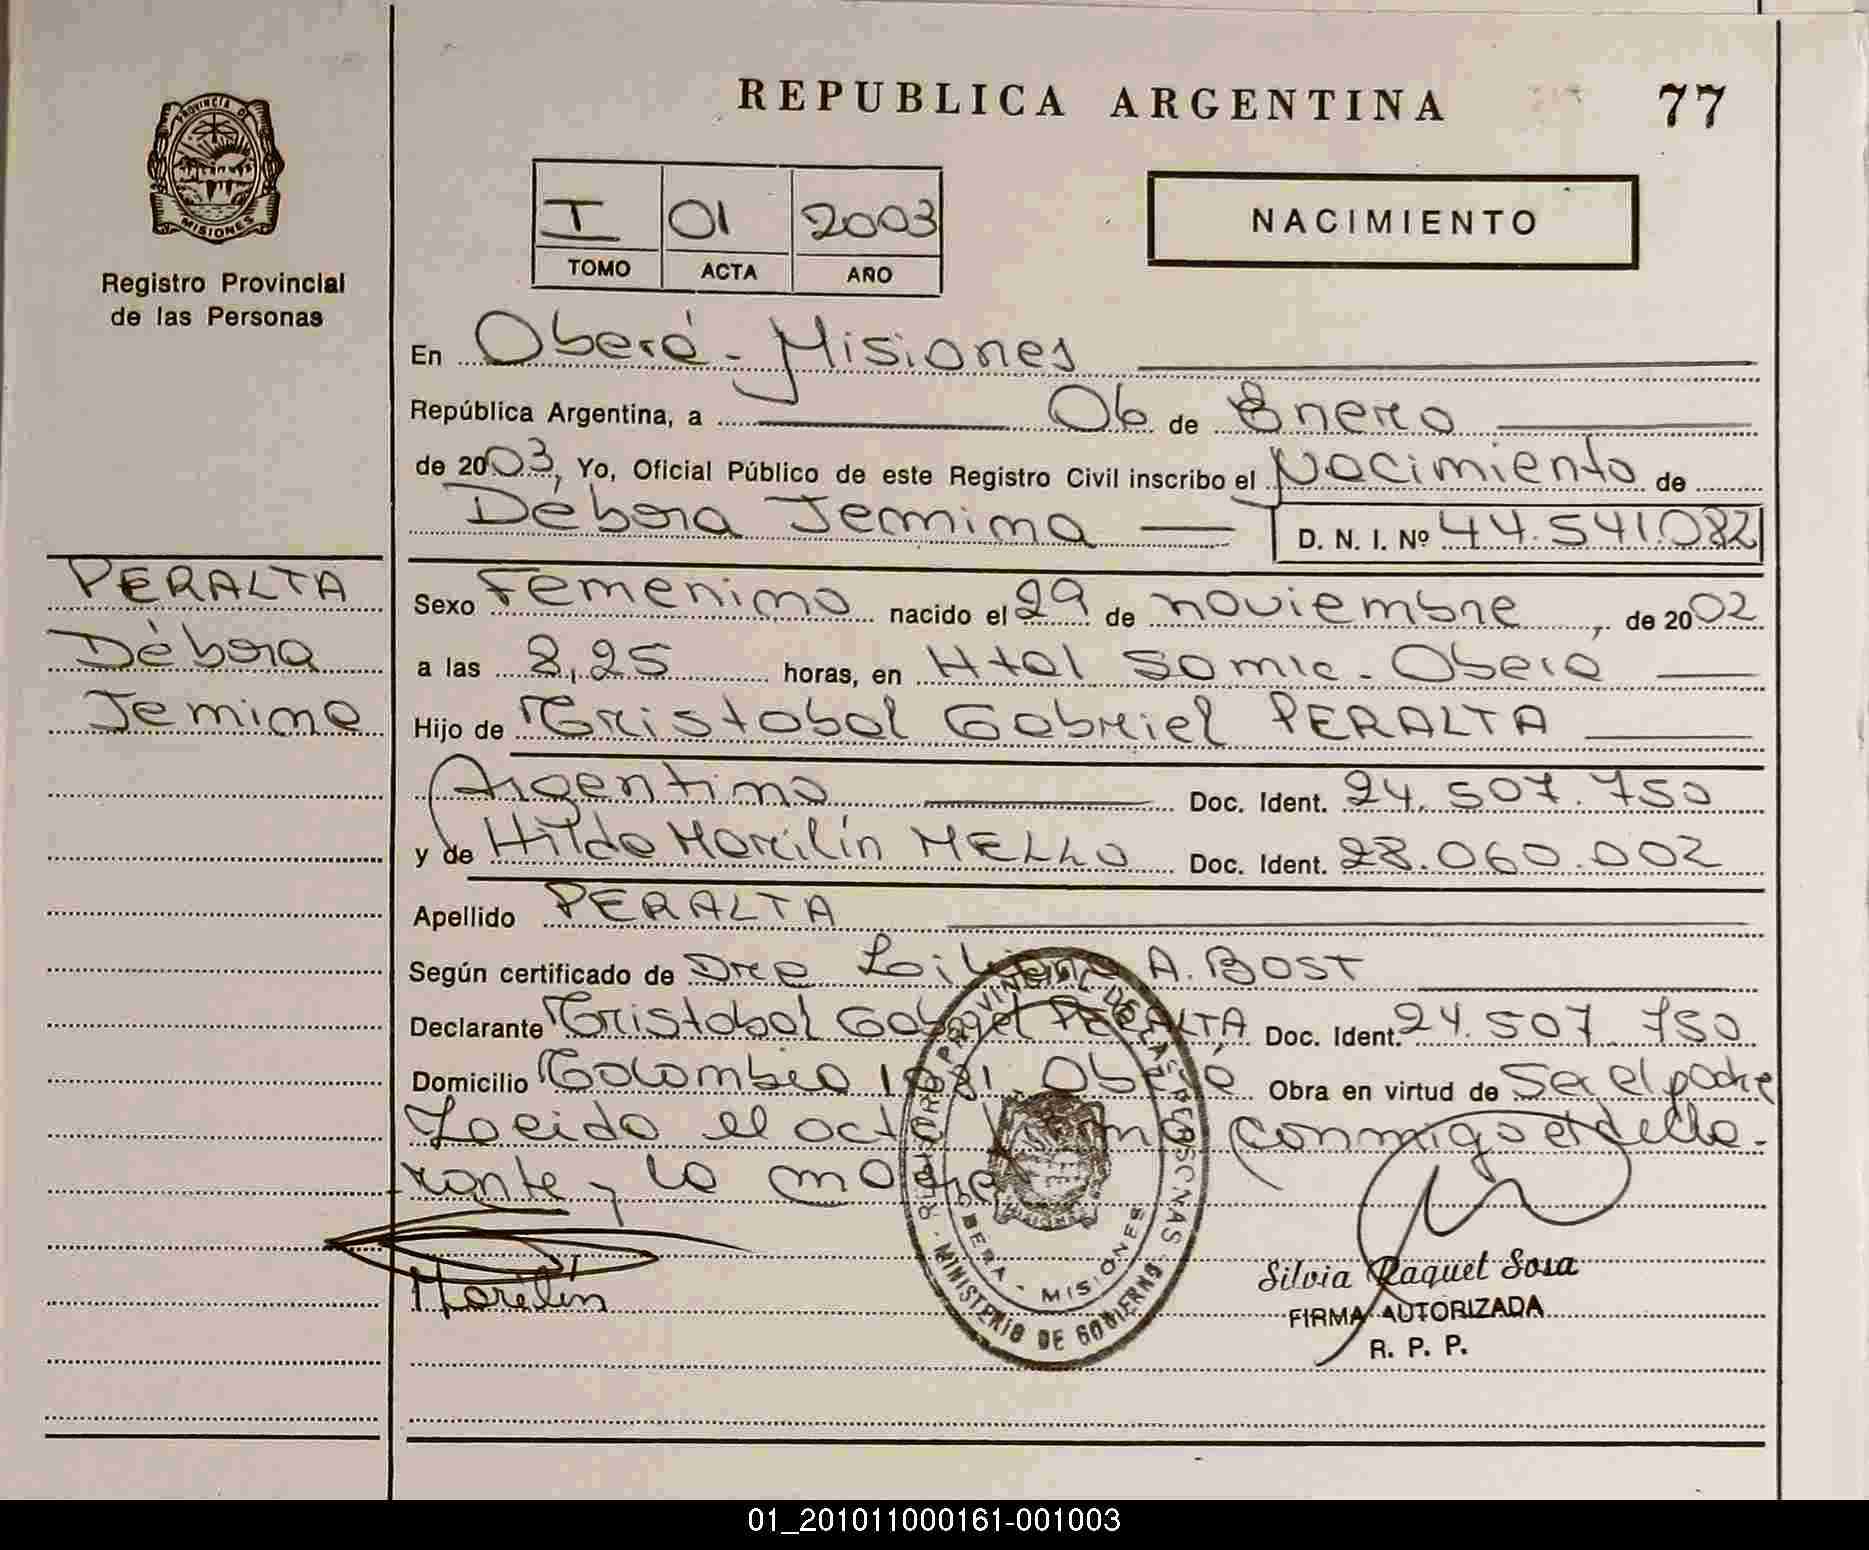 REPUBLICA ARGENTINA
77
PROVINCIA DE MISIONES
Registro Provincial
de las Personas
I 01 2003
TOMO ACTA AÑO
NACIMIENTO
En Oberá - Misiones
República Argentina, a 06 de Enero
de 2003, Yo, Oficial Público de este Registro Civil inscribo el Nacimiento de
Débora Jemima D. N. I. Nº 44.541.082
PERALTA
Débora
Jemima
Sexo Femenino nacido el 29 de noviembre, de 2002
a las 8,25 horas, en Htal Samic - Oberá
Hijo de Cristobal Gabriel PERALTA
Argentino Doc. Ident. 24.507.750
y de Hilda Marilín MELLO Doc. Ident. 28.060.002
Apellido PERALTA
Según certificado de Dra Liliana A. BOST
Declarante Cristobal Gabriel PERALTA Doc. Ident. 24.507.750
Domicilio Colombia Oberá Obra en virtud de Ser el padre
Leida el acta conmigo el decla-
rante y la madre
Marilín
REGISTRO PROVINCIAL DE LAS PERSONAS
OBERA - MISIONES
MINISTERIO DE GOBIERNO
Silvia Raquel Sosa
FIRMA AUTORIZADA
R. P. P.
01_201011000161-001003